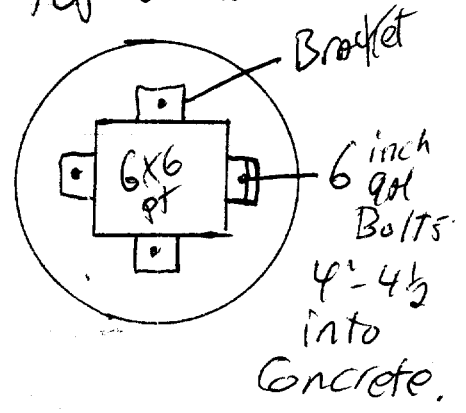 Bracket
6x6
pt
6 inch
gal
Bolts
4"- 4 1/2
into
Concrete.